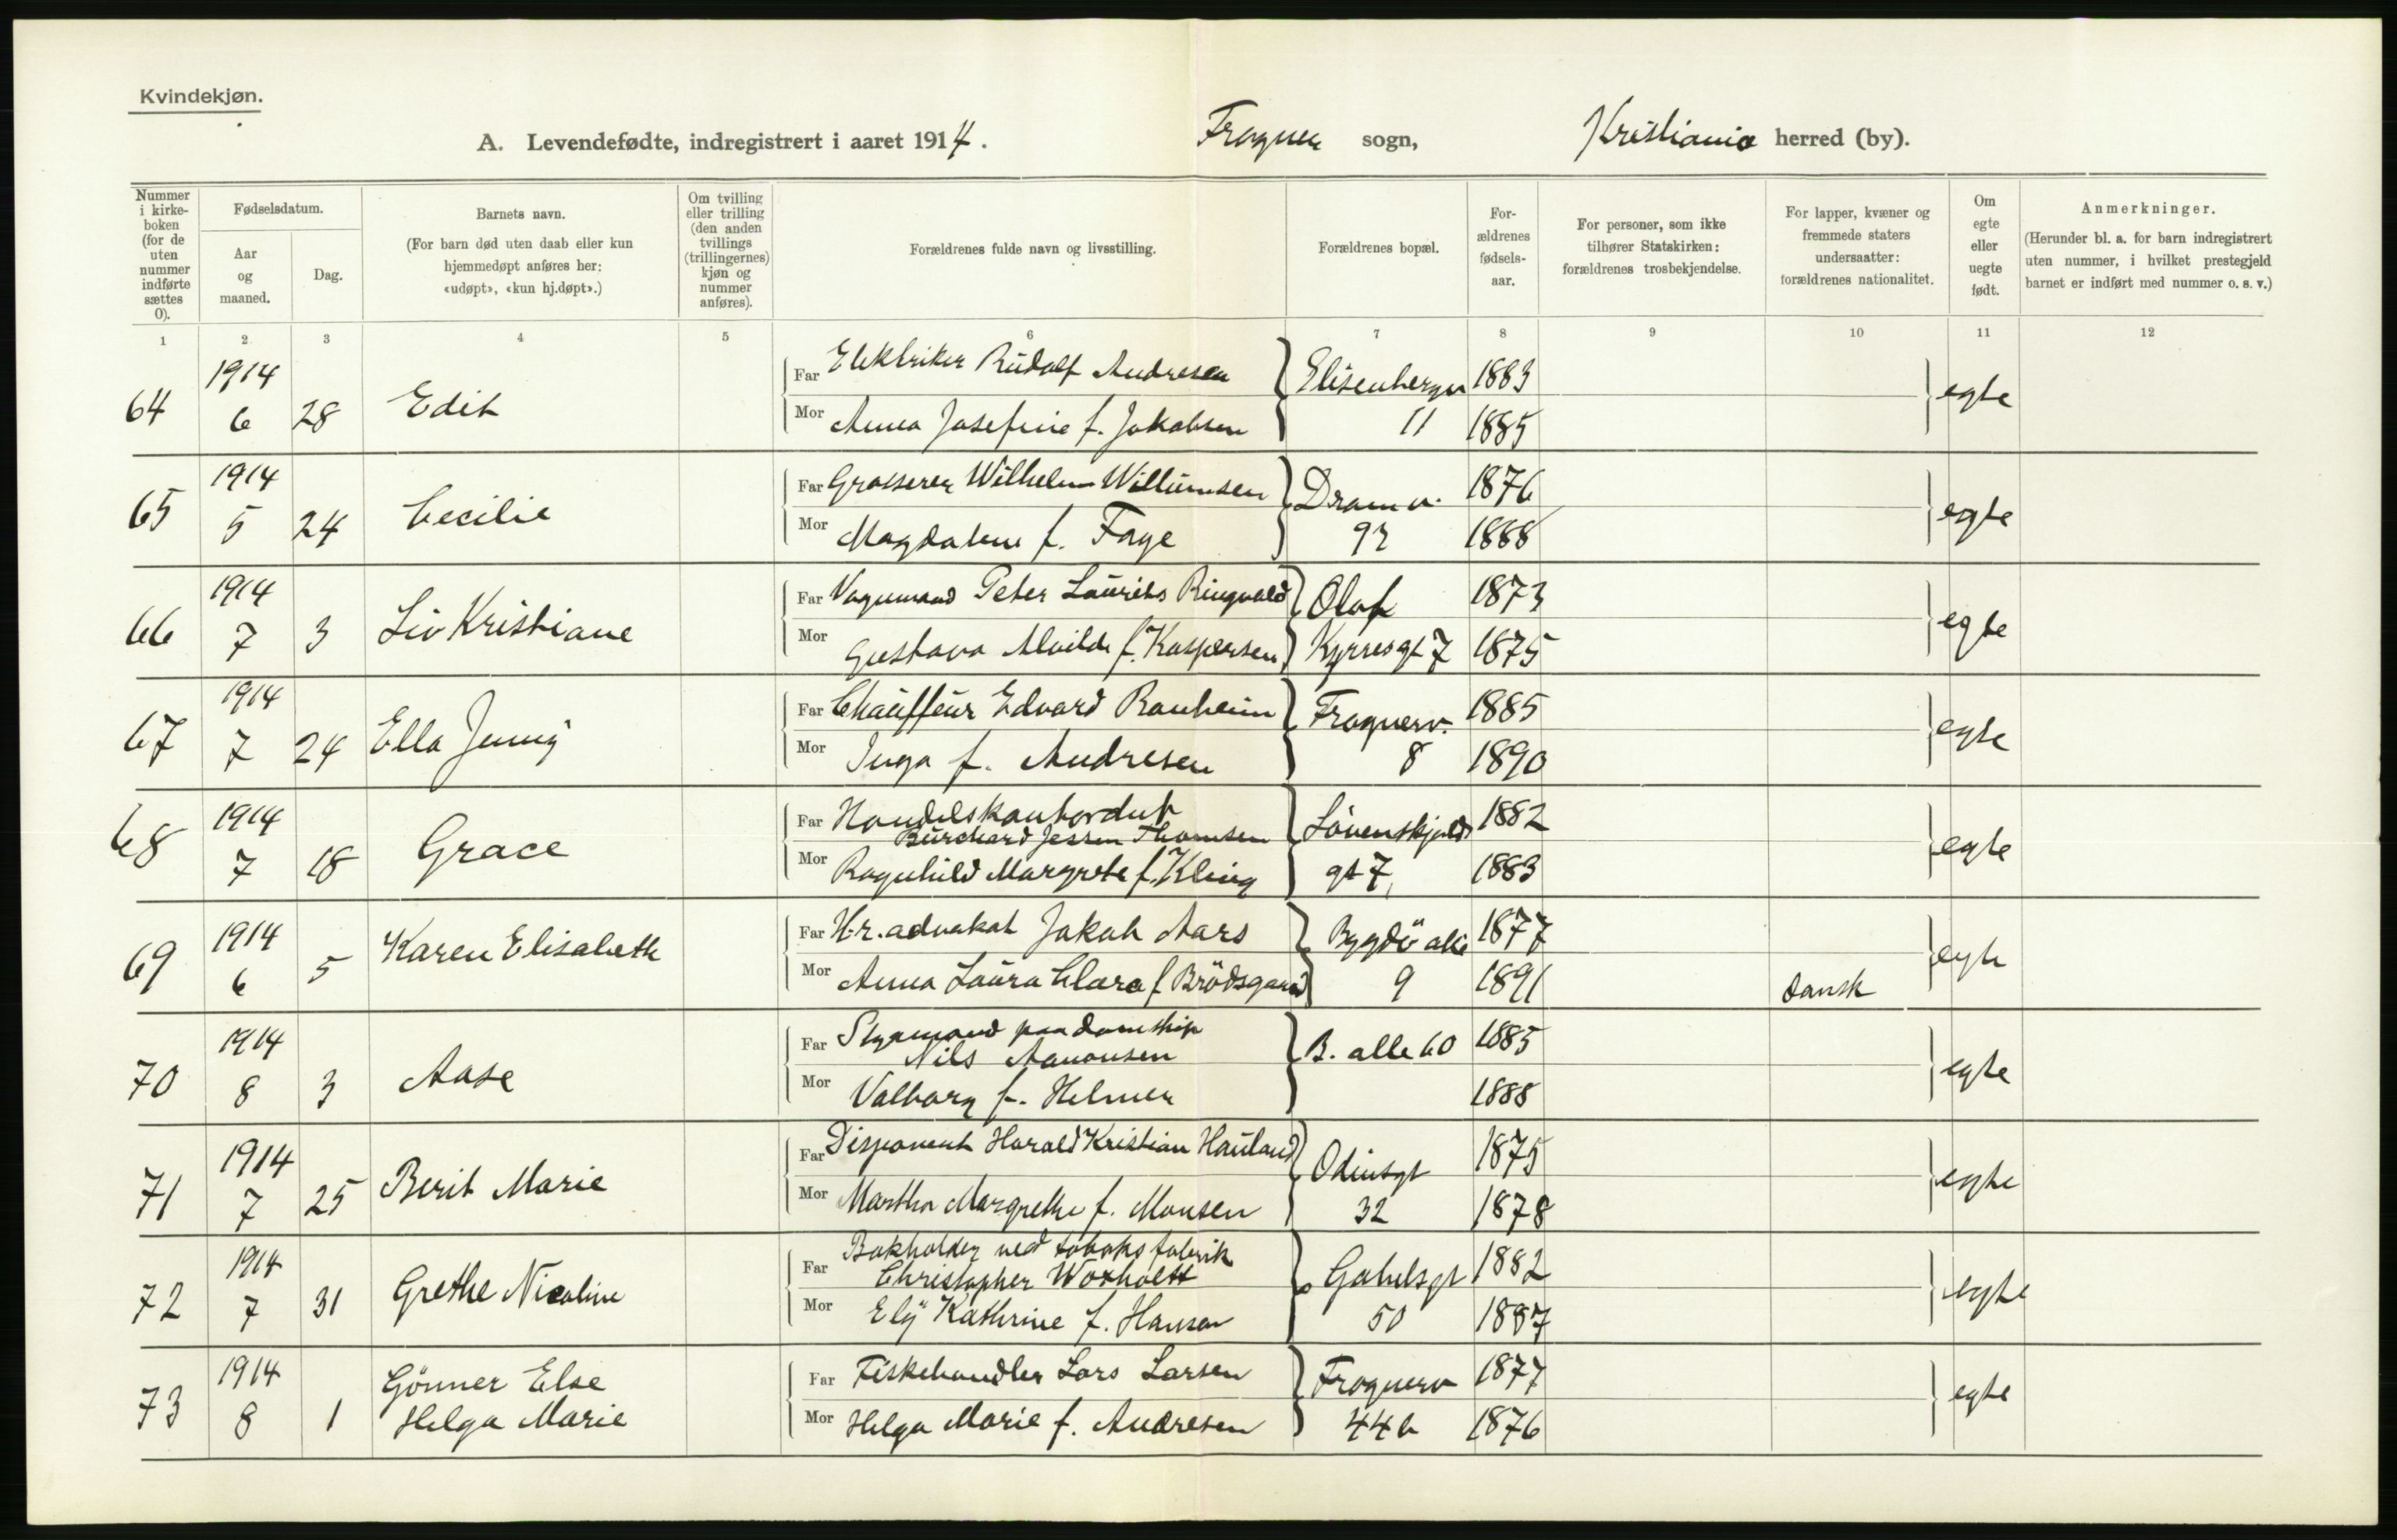 Kvindekjøn.
A. Levendefødte, indregistrert i aaret 1914. Frogner sogn, Kristiania herred (by).
Nummer i kirke-boken (for de uten nummer indførte sættes 0).
Fødselsdatum.
Aar og maaned.
Dag.
Barnets navn.
(For barn død uten daab eller kun hjemmedøpt anføres her: «udøpt», «kun hj.døpt».)
Om tvilling eller trilling (den anden tvillings (trillingernes) kjøn og nummer anføres).
Forældrenes fulde navn og livsstilling.
Forældrenes bopæl.
For-ældrenes fødsels-aar.
For personer, som ikke tilhører Statskirken: forældrenes trosbekjendelse.
For lapper, kvæner og fremmede staters undersaatter: forældrenes nationalitet.
Om egte eller uegte født.
Anmerkninger.
(Herunder bl. a. for barn indregistrert uten nummer, i hvilket prestegjeld barnet er indført med nummer o. s. v.)
1 2 3 4 5 6 7 8 9 10 11 12
1914 Far Elektriker Rudolf Andresen Elisenbergv 1883
64 6 28 Edit egte
Mor Anna Josefine f. Jakobsen 11 1885
1914 Far Grosserer Wilhelm Willumsen Dramv. 1876
65 5 24 Cecilie egte
Mor Magdalene f. Faye 92 1888
1914 Far Vognmand Peter Laurits Ringvold Olaf 1873
66 7 3 Liv Kristiane egte
Mor Gustava Alvilde f. Kaspersen Kyrresgt 7 1875
1914 Far Chauffeur Edvard Ranheim Frognerv. 1885
67 7 24 Ella Jenny egte
Mor Inga f. Andresen 8 1890
1914 Far Handelskontordut
Burchard Jessen Thomsen Løvenskjolds 1882
68 7 18 Grace egte
Mor Ragnhild Margrete f. Kling gt 7, 1883
1914 Far H.r.advokat Jakob Aars Bygdö allé 1877
69 6 5 Karen Elisabeth egte
Mor Anna Laura Clara f. Brödsgaard 9 1891 dansk
1914 Far Styrmand paa damskip
Nils Aanonsen B. alle 60 1885
70 8 3 Aase egte
Mor Valborg f. Helmer 1888
1914 Far Disponent Harald Kristian Hauland Odinsgt 1875
71 7 25 Berit Marie egte
Mor Martha Margrethe f. Monsen 32 1878
1914 Far Bokholder ved tobaksfabrik
Christopher Woxholtt Gabelsgt 1882
72 7 31 Grethe Nicoline egte
Mor Ely Kathrine f. Hansen 50 1887
1914 Far Fiskehandler Lars Larsen Frognerv 1877
73 8 1 Gönner Else
Helga Marie egte
Mor Helga Marie f. Andresen 44 b 1876